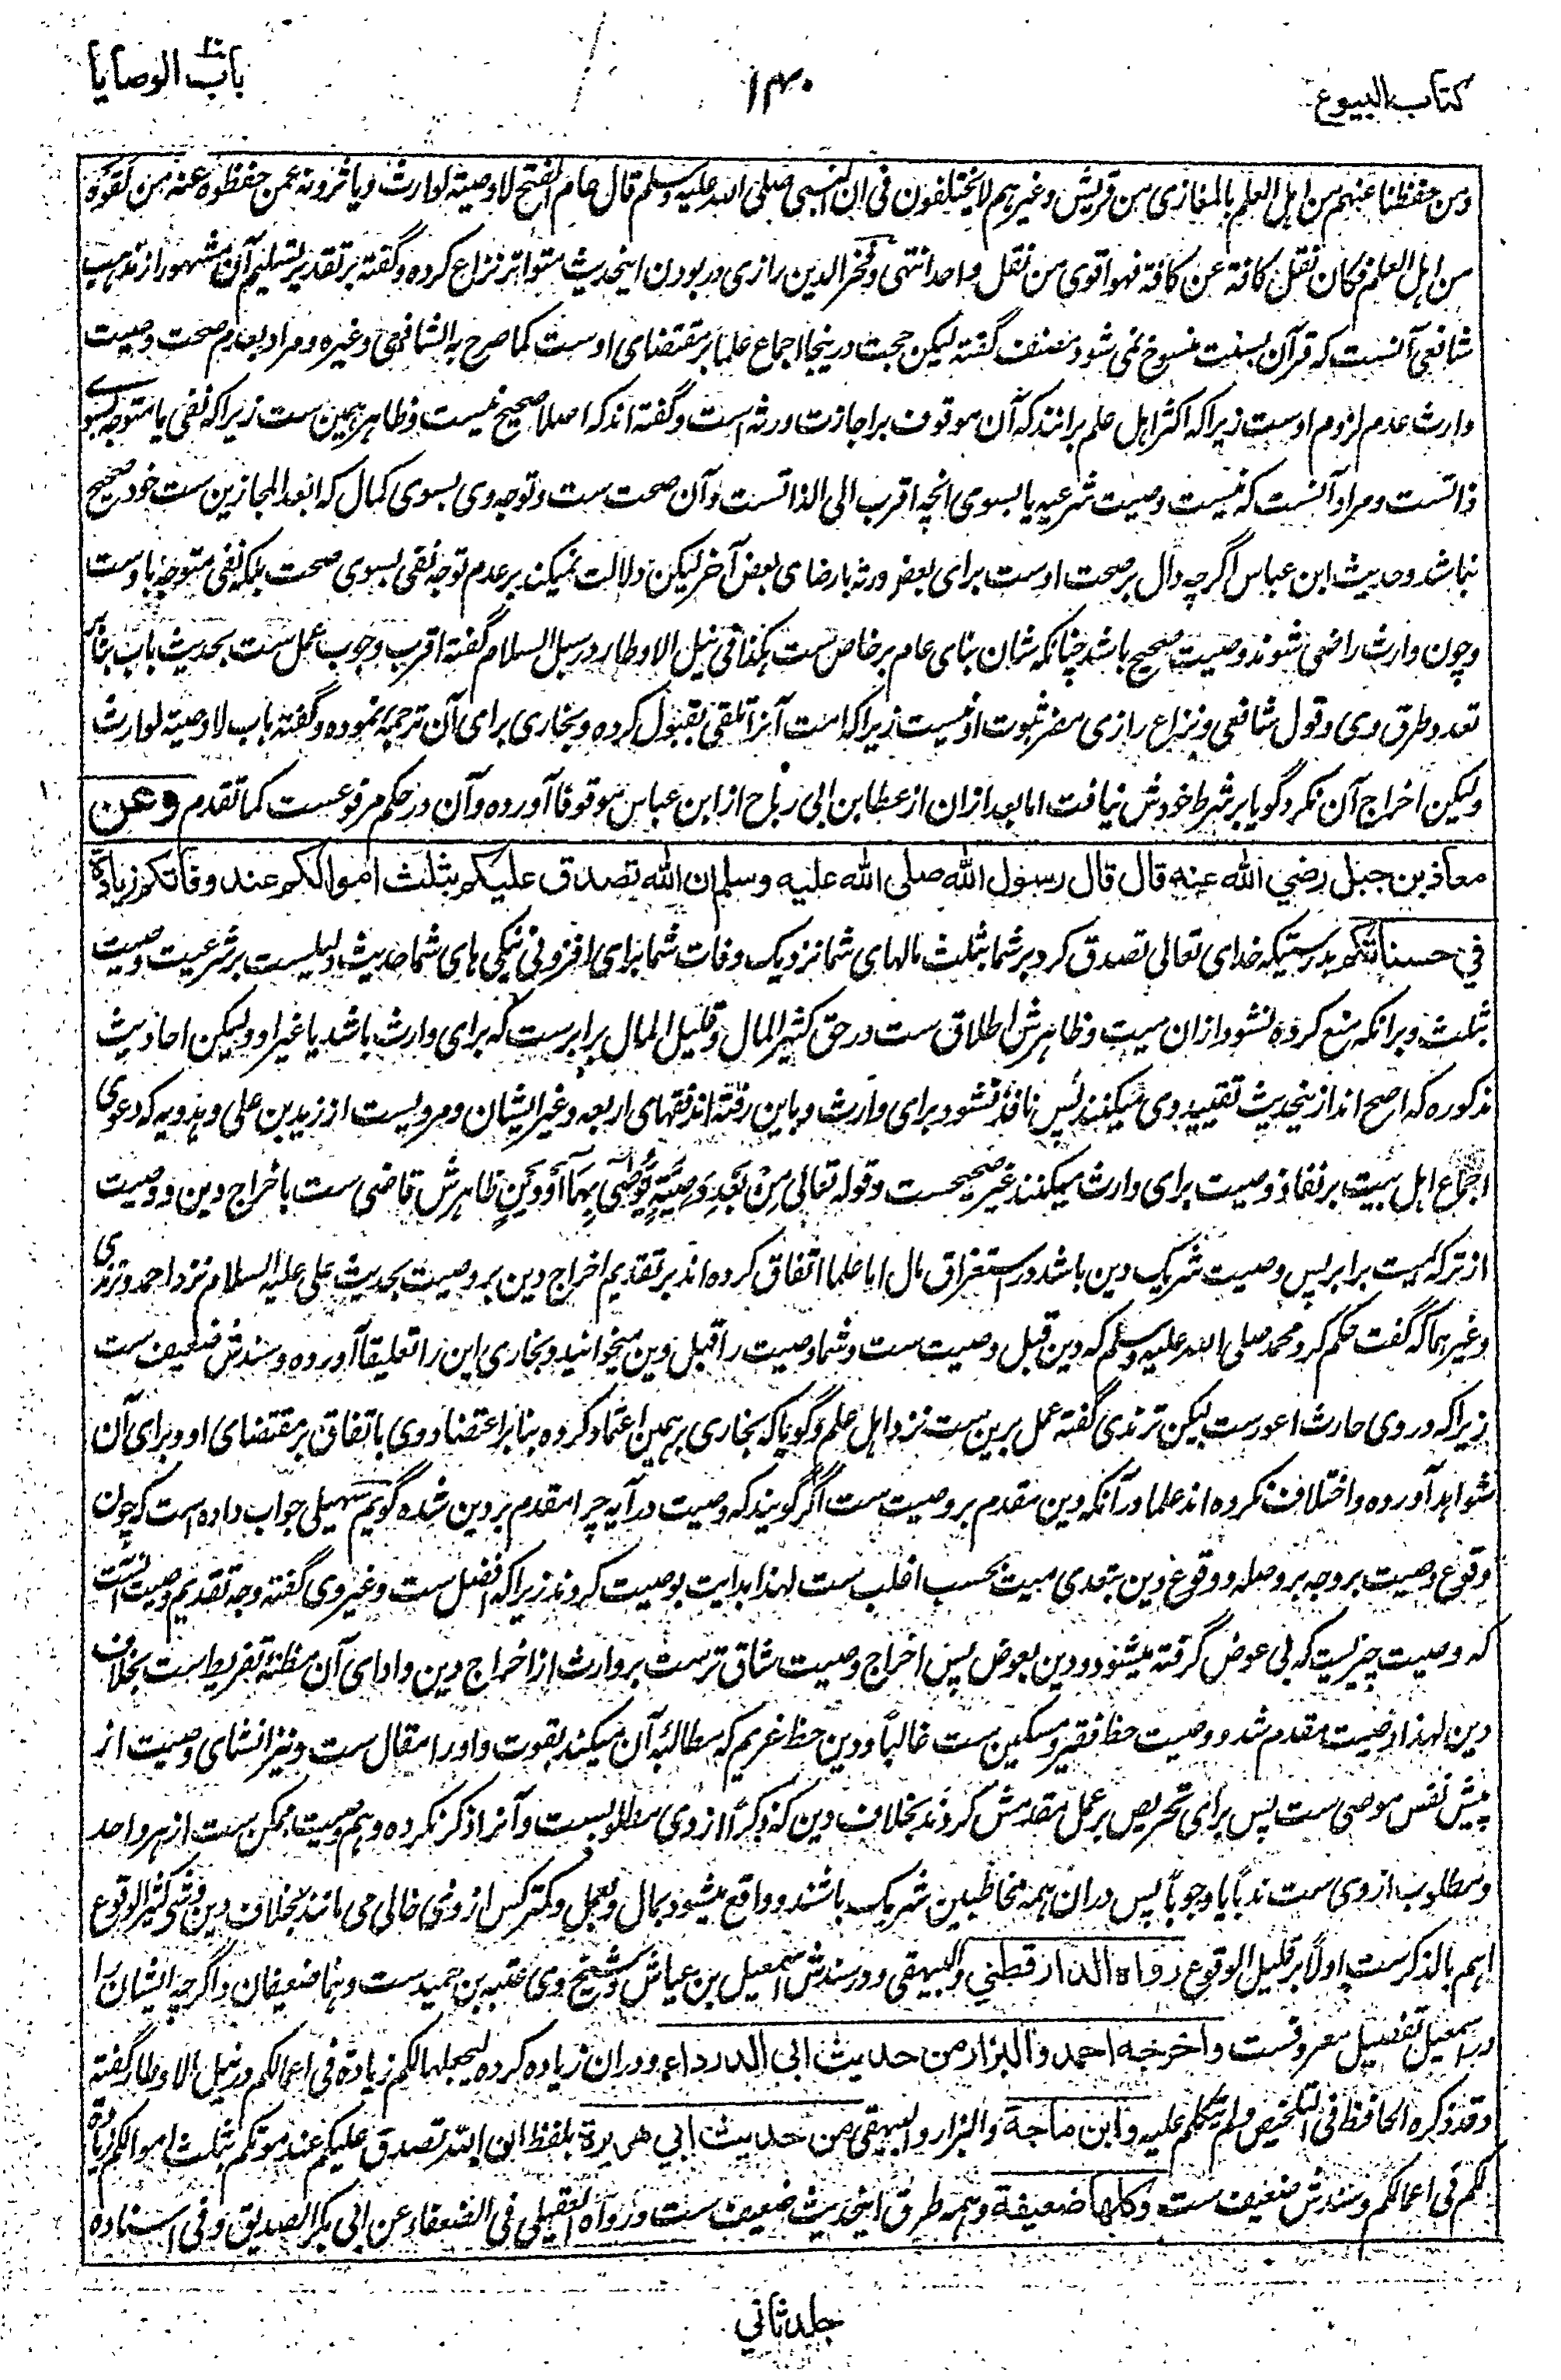 کتاب البیوع
۱۴۰
باب الوصایا
ومن حفظنا عنهم من اہل العلم بالمغازی من قریش وغیرہم لا یختلفون فی ان النبی صلی اللہ علیہ وسلم قال عام الفتح لا وصیة لوارث ویاثرونه عمن حفظوه عنه من لقوه
من اہل العلم فکان نقل کافة عن کافة فهو اقوی من نقل واحد انتہی وفخر الدین رازی در بودن اینحدیث متواتر نزاع کرده و گفته بر تقدیر تسلیم آن مشهور از مذہب
شافعی آنست که قرآن بسنت منسوخ نمی شود مصنف گفته لیکن حجت درینجا اجماع علما بر مقتضای اوست کما صرح به الشافعی وغیره ومراد بعدم صحت وصیت
وارث عدم لزوم اوست زیرا که اکثر اہل علم برانند که آن موقوف بر اجازت ورثه است و گفته اند که اصلا صحیح نیست وظاہر ہمین ست زیرا که نفی یا متوجه بسوے
ذاتست ومراد آنست که نیست وصیت شرعیه یا بسوی انچه اقرب الی الذاتست وآن صحت ست وتوجه وی بسوی کمال که ابعد المجازین ست خود صحیح
نباشد وحدیث ابن عباس اگرچه دال بر صحت اوست برای بعض ورثه با رضای بعض آخر لیکن دلالت نمیکند بر عدم توجه نفی بسوی صحت بلکه نفی متوجه باوست
وچون وارث راضی شوند وصیت صحیح باشد چنانکه شان بنای عام بر خاص ست ہکذا فی نیل الاوطار ودر سبل السلام گفته اقرب وجوب عمل ست بحدیث باب بنابر
تعدد طرق وی وقول شافعی ونزاع رازی مضر ثبوت او نیست زیرا که امت آنرا تلقی بقبول کرده وبخاری برای آن ترجمه نموده و گفته باب لا وصیة لوارث
ولیکن اخراج آن نکرد گویا بر شرط خودش نیافت اما بعد ازان از عطا بن ابی رباح از ابن عباس موقوفا آورده وآن در حکم مرفوعست کما تقدم وعن
معاذ بن جبل رضی الله عنه قال قال رسول الله صلی الله علیه وسلم ان الله تصدق علیکم بثلث اموالکم عند وفاتکم زیادة
في حسناتکم بدرستیکه خدای تعالی تصدق کرد بر شما بثلث مالهای شما نزدیک وفات شما برای افزونی نیکی ہای شما حدیث دلیلست بر شرعیت وصیت
بثلث وبرانکه منع کرده نشود ازان میت وظاہرش اطلاق ست در حق کثیر المال وقلیل المال برابرست که برای وارث باشد یا غیر او ولیکن احادیث
مذکوره که اصح اند ازینحدیث تقیید وی میکنند پس نافذ نشود برای وارث وباین رفته اند فقهای اربعه وغیر ایشان ومرویست از زید بن علی وہدویه که دعوی
اجماع اہل بیت بر نفاذ وصیت برای وارث میکنند غیر صحیحست وقوله تعالی مِنْ بَعْدِ وَصِیَّةٍ یُوْصٰی بِهَا اَوْ دَیْنٍ ظاہرش قاضی ست باخراج دین ووصیت
از ترکه میت برابر پس وصیت شریک دین باشد در استغراق مال اما علما اتفاق کرده اند بر تقدیم اخراج دین بر وصیت بحدیث علی علیه السلام نزد احمد وترمذی
وغیرہما که گفت حکم کرد محمد صلی اللہ علیہ وسلم که دین قبل وصیت ست وشما وصیت را قبل دین میخوانید وبخاری این را تعلیقا آورده وسندش ضعیف ست
زیرا که در وی حارث اعورست لیکن ترمذی گفته عمل برین ست نزد اہل علم وگویا که بخاری بر ہمین اعتماد کرده بنابر اعتضاد وی باتفاق بر مقتضای او وبرای آن
شواہد آورده واختلاف نکرده اند علما در آنکه دین مقدم بر وصیت ست اگر گویند که وصیت در آیه چرا مقدم بر دین شده گویم سهیلی جواب داده است که چون
وقوع وصیت بر وجه بر وصله ووقوع دین بتعدی میت بحسب اغلب ست لهذا بدایت بوصیت کردند زیرا که افضل ست وغیر وی گفته وجه تقدیم وصیت آنست
که وصیت چیزیست که بی عوض گرفته میشود ودین بعوض پس اخراج وصیت شاق ترست بر وارث از اخراج دین وادای آن مظنۂ تفریط است بخلاف
دین لهذا وصیت مقدم شد ووصیت حظ فقیر ومسکین ست غالباً ودین حظ غریم که مطالبۂ آن میکند بقوت واو را مقال ست ونیز انشای وصیت از
پیش نفس موصی ست پس برای تحریص بر عمل مقدمش کردند بخلاف دین که ذکراً از وی مطلوبست وآنرا ذکر نکرده وہم وصیت ممکن ست از ہر واحد
ومطلوب از وی ست ندباً یا وجوباً پس دران ہمه مخاطبین شریک باشند وواقع میشود بمال وبعمل وکمتر کس از وی خالی می ماند بخلاف دین وشی کثیر الوقوع
اہم بالذکرست اولاً بر قلیل الوقوع رواه الدارقطني والبیهقی ودر سندش اسمعیل بن عیاش وشیخ وی عتبه بن حمید ست وہما ضعیفان واگرچه ایشان را
در اسمعیل تفصیل معروفست واخرجه احمد والبزار من حدیث ابی الدرداء ودران زیاده کرده لیجعلها لکم زیادة فی اعمالکم ودر نیل الاوطار گفته
وقد ذکره الحافظ فی التلخیص ولم یتکلم علیه وابن ماجة والبزار والبیهقی من حدیث ابي هریرة بلفظ ان اللہ تصدق علیکم عند موتکم بثلث اموالکم زیادة
لکم فی اعمالکم وسندش ضعیف ست وکلها ضعیفة وہمه طرق اینحدیث ضعیف ست ورواه العقیلی فی الضعفاء عن ابی بکر الصدیق وفی اسناده
جلد ثانی